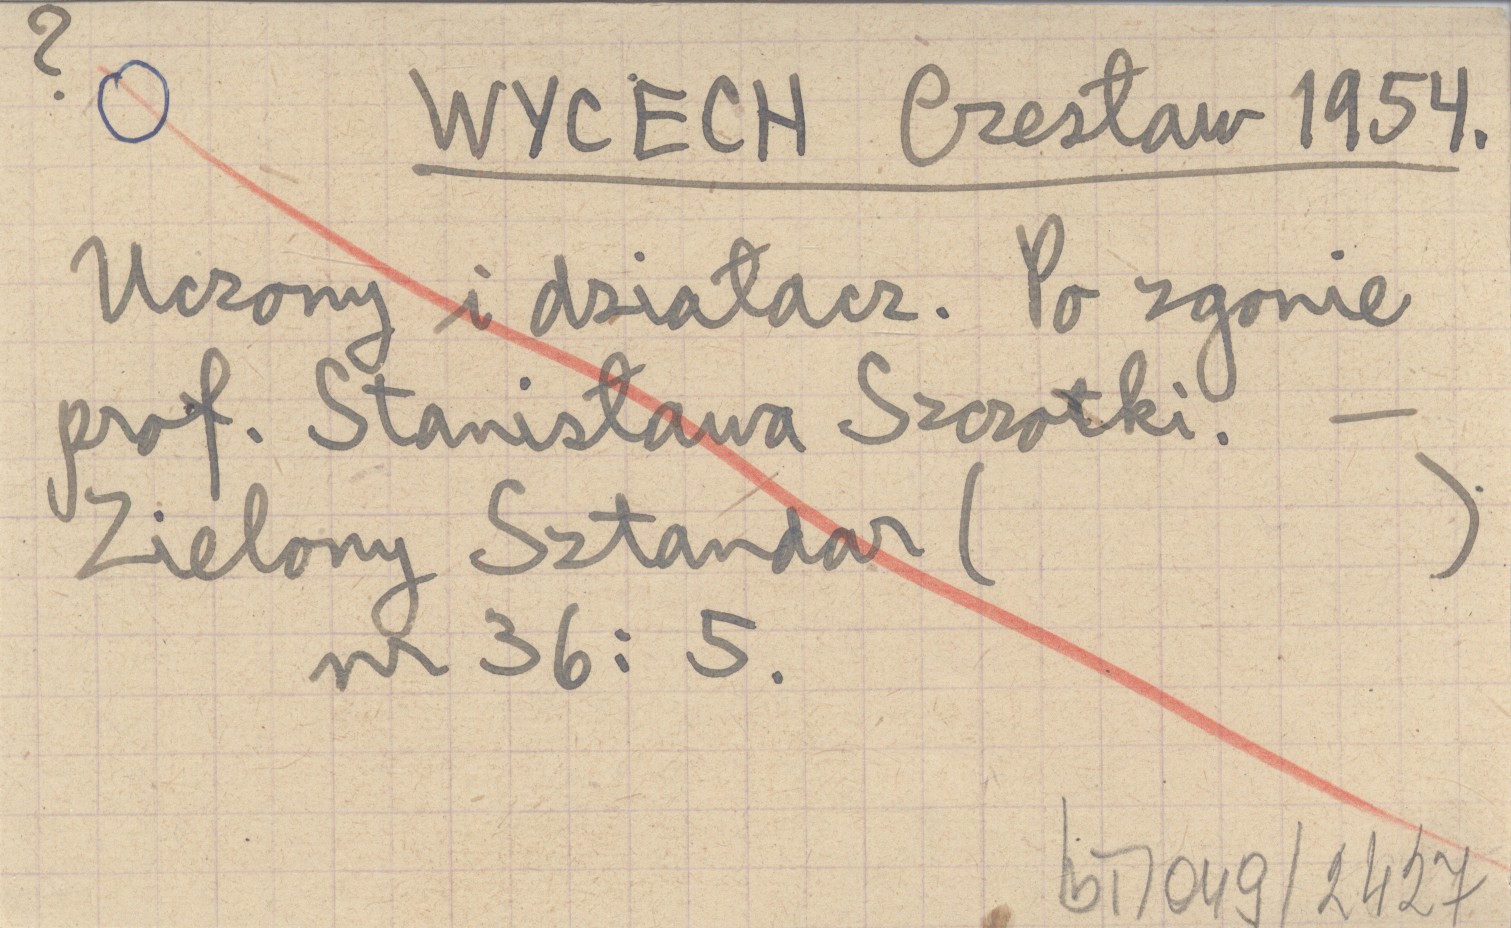 ?
WYCECH Czesław 1954.
Uczony i działacz. Po zgonie
prof. Stanisława Szczotki. —
Zielony Sztandar (             )
nr 36: 5.
049/2427